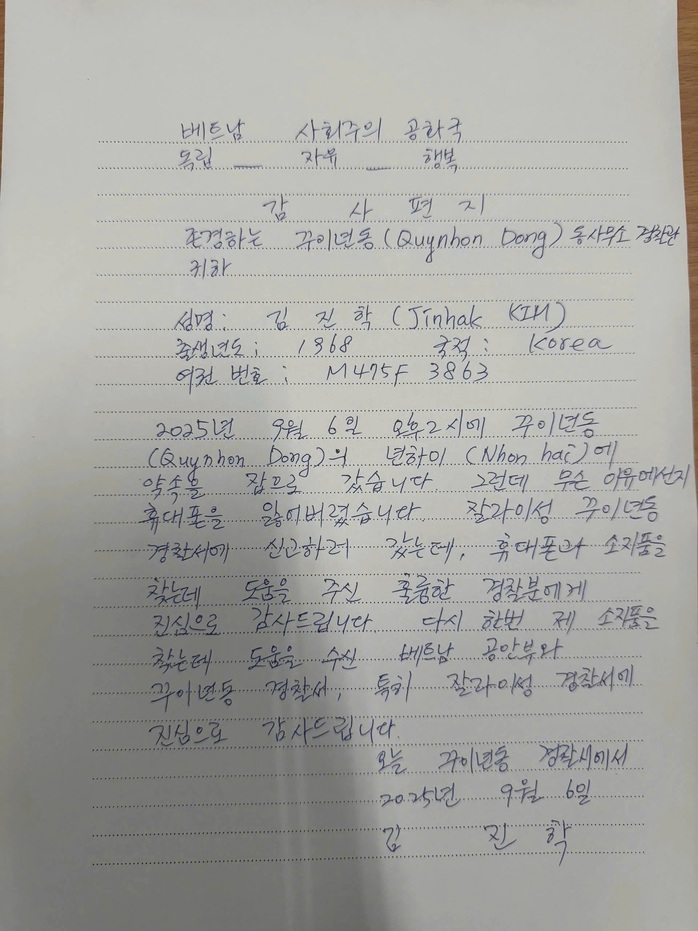 베트남 사회주의 공화국
독립 __ 자유 __ 행복
감 사 편 지
존경하는 꾸이년동(Quynhon Dong)동사무소 경찰관
귀하
성명: 김 진 학(Jinhak KIM)
출생년도: 1968 국적: Korea
여권 번호: M475F 3863
2025년 9월 6일 오후2시에 꾸이년동
(Quynhon Dong)의 년하이(Nhon hai)에
약속을 잡으로 갔습니다. 그런데 무슨 이유에선지
휴대폰을 잃어버렸습니다. 잘라이성 꾸이년동
경찰서에 신고하러 갔는데, 휴대폰과 소지품을
찾는데 도움을 주신 훌륭한 경찰분에게
진심으로 감사드립니다. 다시 한번 제 소지품을
찾는데 도움을 주신 베트남 공안부와
꾸이년동 경찰서, 특히 잘라이성 경찰서에
진심으로 감사드립니다.
오늘 꾸이년동 경찰서에서
2025년 9월 6일
김 진 학